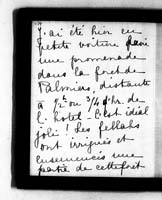 j'ai été hier en
petite voiture faire
une promenade
dans la forêt de
Palmiers, distante
à 1/2 ou 3/4 d'hr. de
l'hotel. C'est idéal
joli! Les fellahs
ont irrigués et
ensemencés une
partie de cette forêt